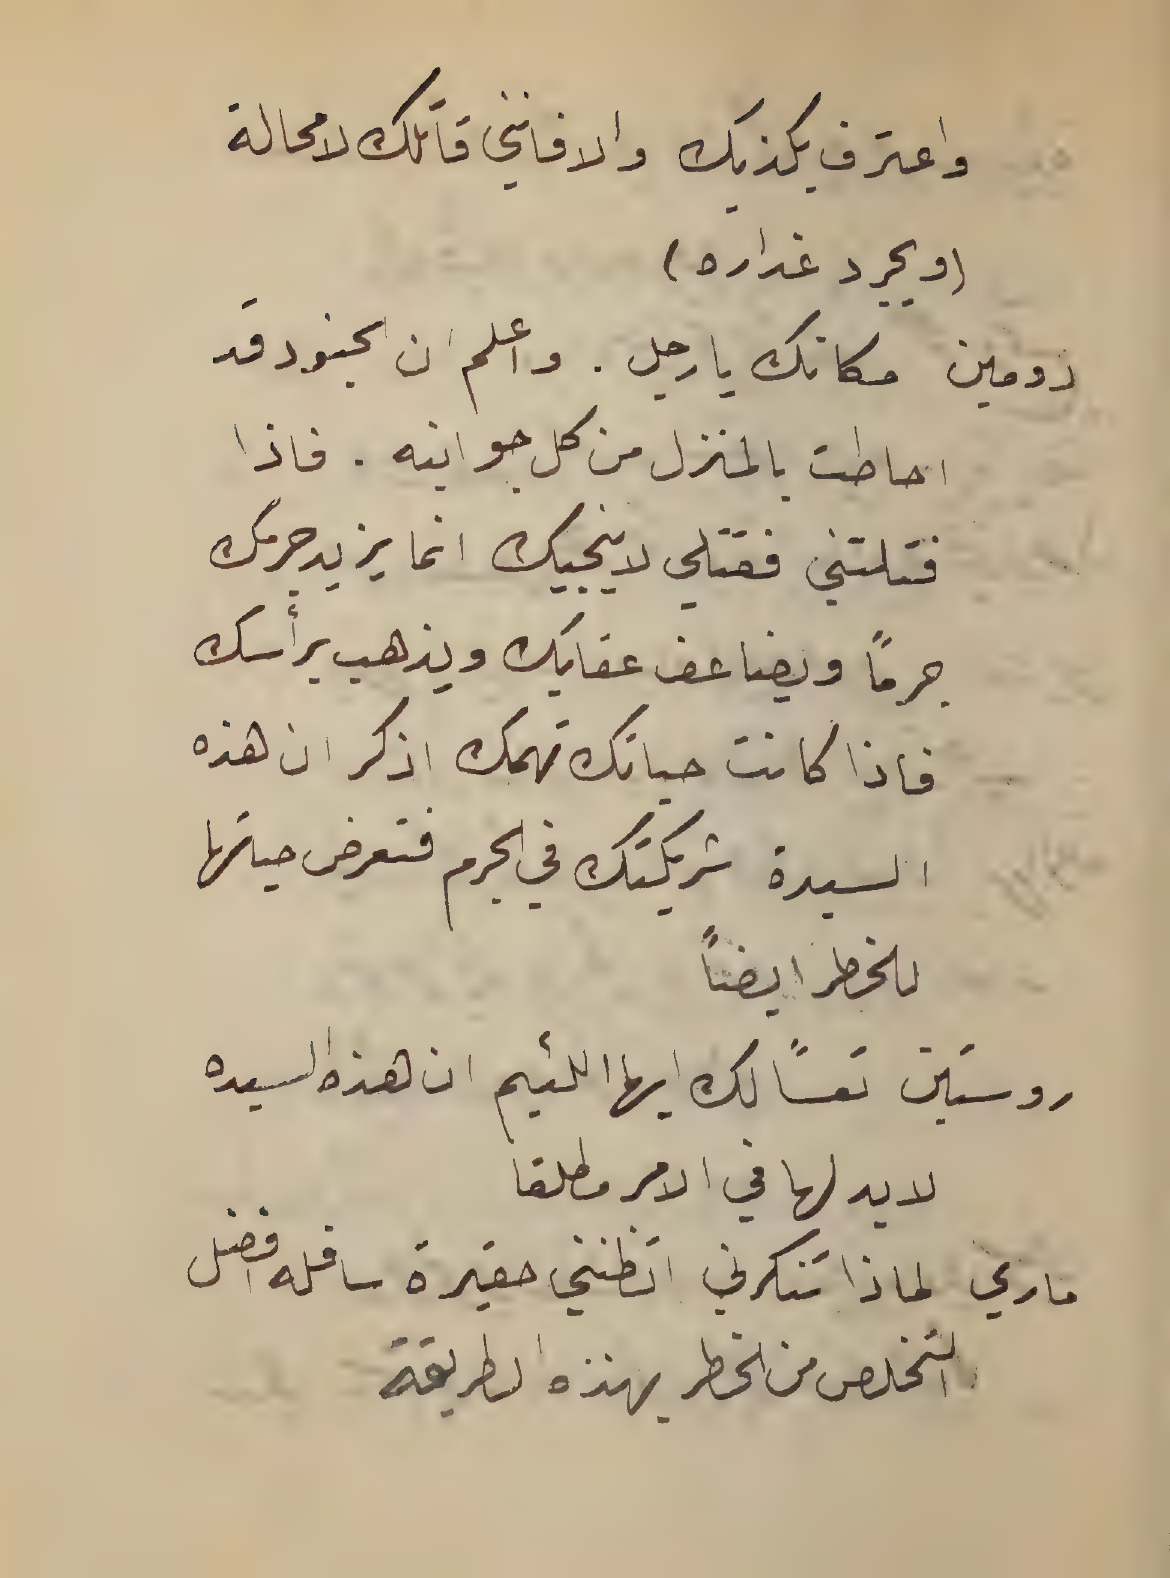 واعترف بكذبك والا فانني قاتلك لا محالة
(ويجرد غداره)
دومين مكانك يا رجل . واعلم ان الجنود قد
احاطت بالمنزل من كل جوانبه . فاذا
قتلتني فقتلي لا ينجيك انما يزيد جرمك
جرمًا ويضاعف عقابك ويذهب برأسك
فاذا كانت حياتك تهمك اذكر ان هذه
السيدة شريكتك في الجرم فتعرض حياتها
للخطر ايضاً
روستين تعسًا لك ايها اللئيم ان هذه السيده
لا يد لها في الامر مطلقا
ماري لماذا تنكرني اتظنني حقيرة سافله افضل
التخلص من الخطر بهذه الطريقة